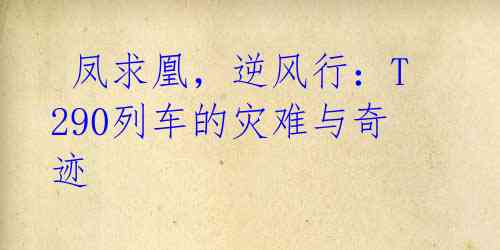 凤求凰，逆风行：T
290列车的灾难与奇
迹